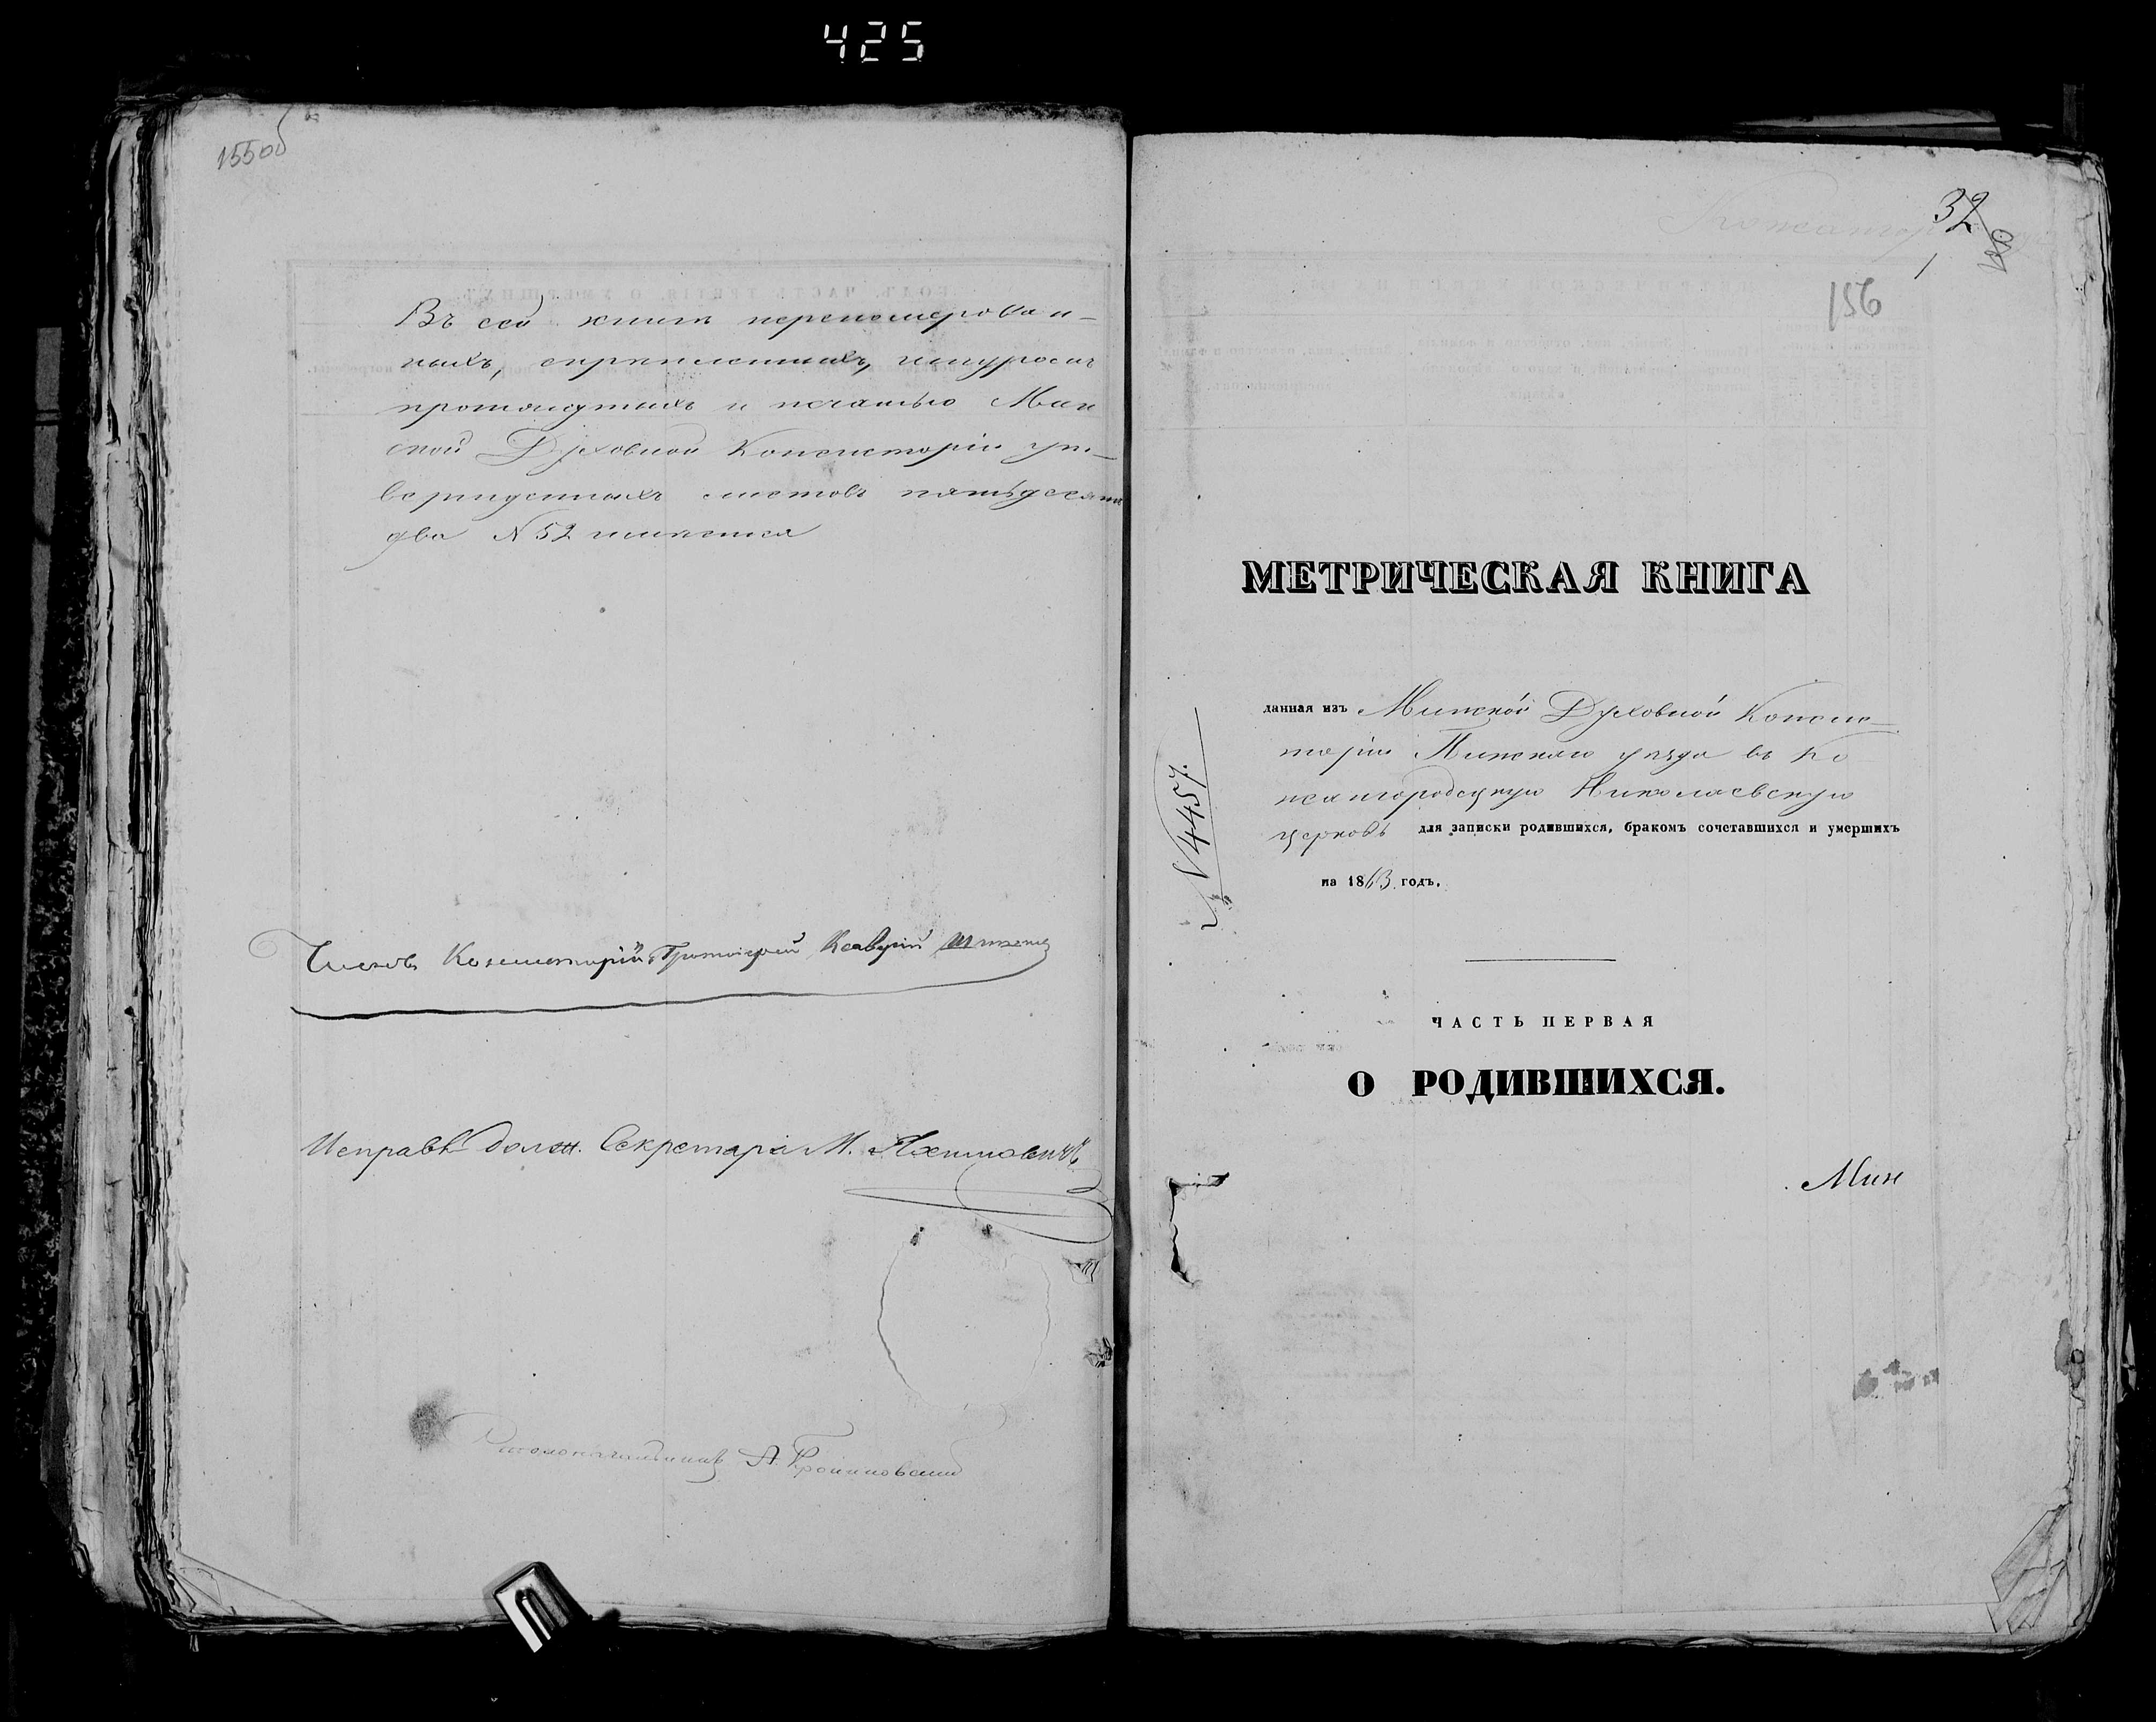 425
155об
Въ сей книгѣ перенумерован-
ныхъ, скрѣпленныхъ, шнуромъ
прошнурныхъ и печатью Мин
ской Духовной Консисторіи ут-
вержденныхъ листовъ пятьдесятъ
два N 52 имѣется
Членъ Консисторіи, Протоіерей
Исправл. должн. Секретаря М.
Столоначальникъ А.
32
1
156
МЕТРИЧЕСКАЯ КНИГА
данная изъ Минской Духовной Консис-
торіи Пинскаго уѣзда въ Ко
жангородецкую Николаевскую
церковь для записки родившихся, бракомъ сочетавшихся и умершихъ
на 1863 годъ.
N 4457.
ЧАСТЬ ПЕРВАЯ
О РОДИВШИХСЯ.
Мин